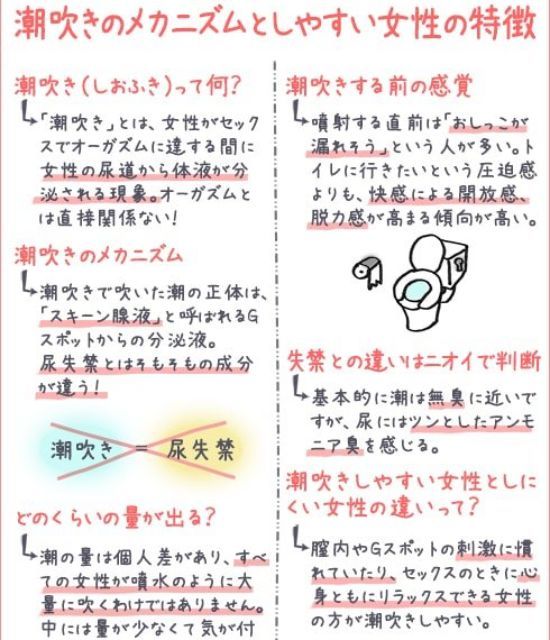 潮吹きのメカニズムとしやすい女性の特徴
潮吹き(しおふき)って何?
「潮吹き」とは、女性がセック
スでオーガズムに達する間に
女性の尿道から体液が分
泌される現象。オーガズムと
は直接関係ない!
潮吹きのメカニズム
潮吹きで吹いた潮の正体は、
「スキーン腺液」と呼ばれるG
スポットからの分泌液。
尿失禁とはそもそもの成分
が違う!
潮吹き = 尿失禁
どのくらいの量が出る?
潮の量は個人差があり、すべ
ての女性が噴水のように大
量に吹くわけではありません。
中には量が少なくて気が付
潮吹きする前の感覚
噴射する直前は「おしっこが
漏れそう」という人が多い。ト
イレに行きたいという圧迫感
よりも、快感による開放感、
脱力感が高まる傾向が高い。
失禁との違いはニオイで判断
基本的に潮は無臭に近いで
すが、尿にはツンとしたアンモ
ニア臭を感じる。
潮吹きしやすい女性としに
くい女性の違いって?
膣内やGスポットの刺激に慣
れていたり、セックスのときに心
身ともにリラックスできる女性
の方が潮吹きしやすい。